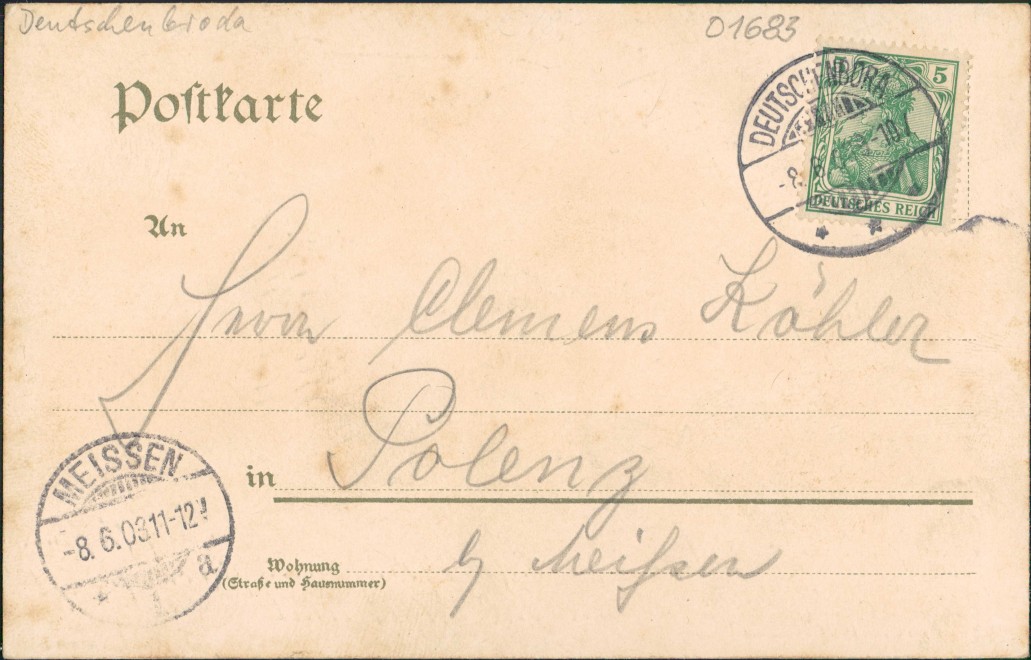 Deutschenbroda
01683
Postkarte
DEUTSCHENBORA
5
-8. 6.
-10V
DEUTSCHES REICH
An
Herrn Clemens Köhler
in Polenz
MEISSEN
-8.6.03 11-12V
a.
Wohnung
(Straße und Hausnummer)
b/ Meißen